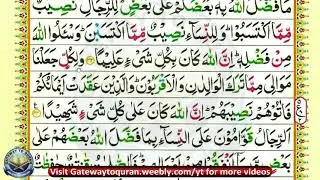 مَا فَضَّلَ اللّٰهُ بِهٖ بَعْضَكُمْ عَلٰى بَعْضٍ ؕ لِلرِّجَالِ نَصِیْبٌ
مِّمَّا اكْتَسَبُوْا ؕ وَ لِلنِّسَآءِ نَصِیْبٌ مِّمَّا اكْتَسَبْنَ ؕ وَسْـَٔلُوا اللّٰهَ
مِنْ فَضْلِهٖ ؕ اِنَّ اللّٰهَ كَانَ بِكُلِّ شَیْءٍ عَلِیْمًا ۝ وَ لِكُلٍّ جَعَلْنَا
مَوَالِیَ مِمَّا تَرَكَ الْوَالِدٰنِ وَ الْاَقْرَبُوْنَ ؕ وَ الَّذِیْنَ عَقَدَتْ اَیْمَانُكُمْ
فَاٰتُوْهُمْ نَصِیْبَهُمْ ؕ اِنَّ اللّٰهَ كَانَ عَلٰى كُلِّ شَیْءٍ شَهِیْدًا ۝
اَلرِّجَالُ قَوّٰمُوْنَ عَلَى النِّسَآءِ بِمَا فَضَّلَ اللّٰهُ بَعْضَهُمْ عَلٰى
Visit Gatewaytoquran.weebly.com/yt for more videos